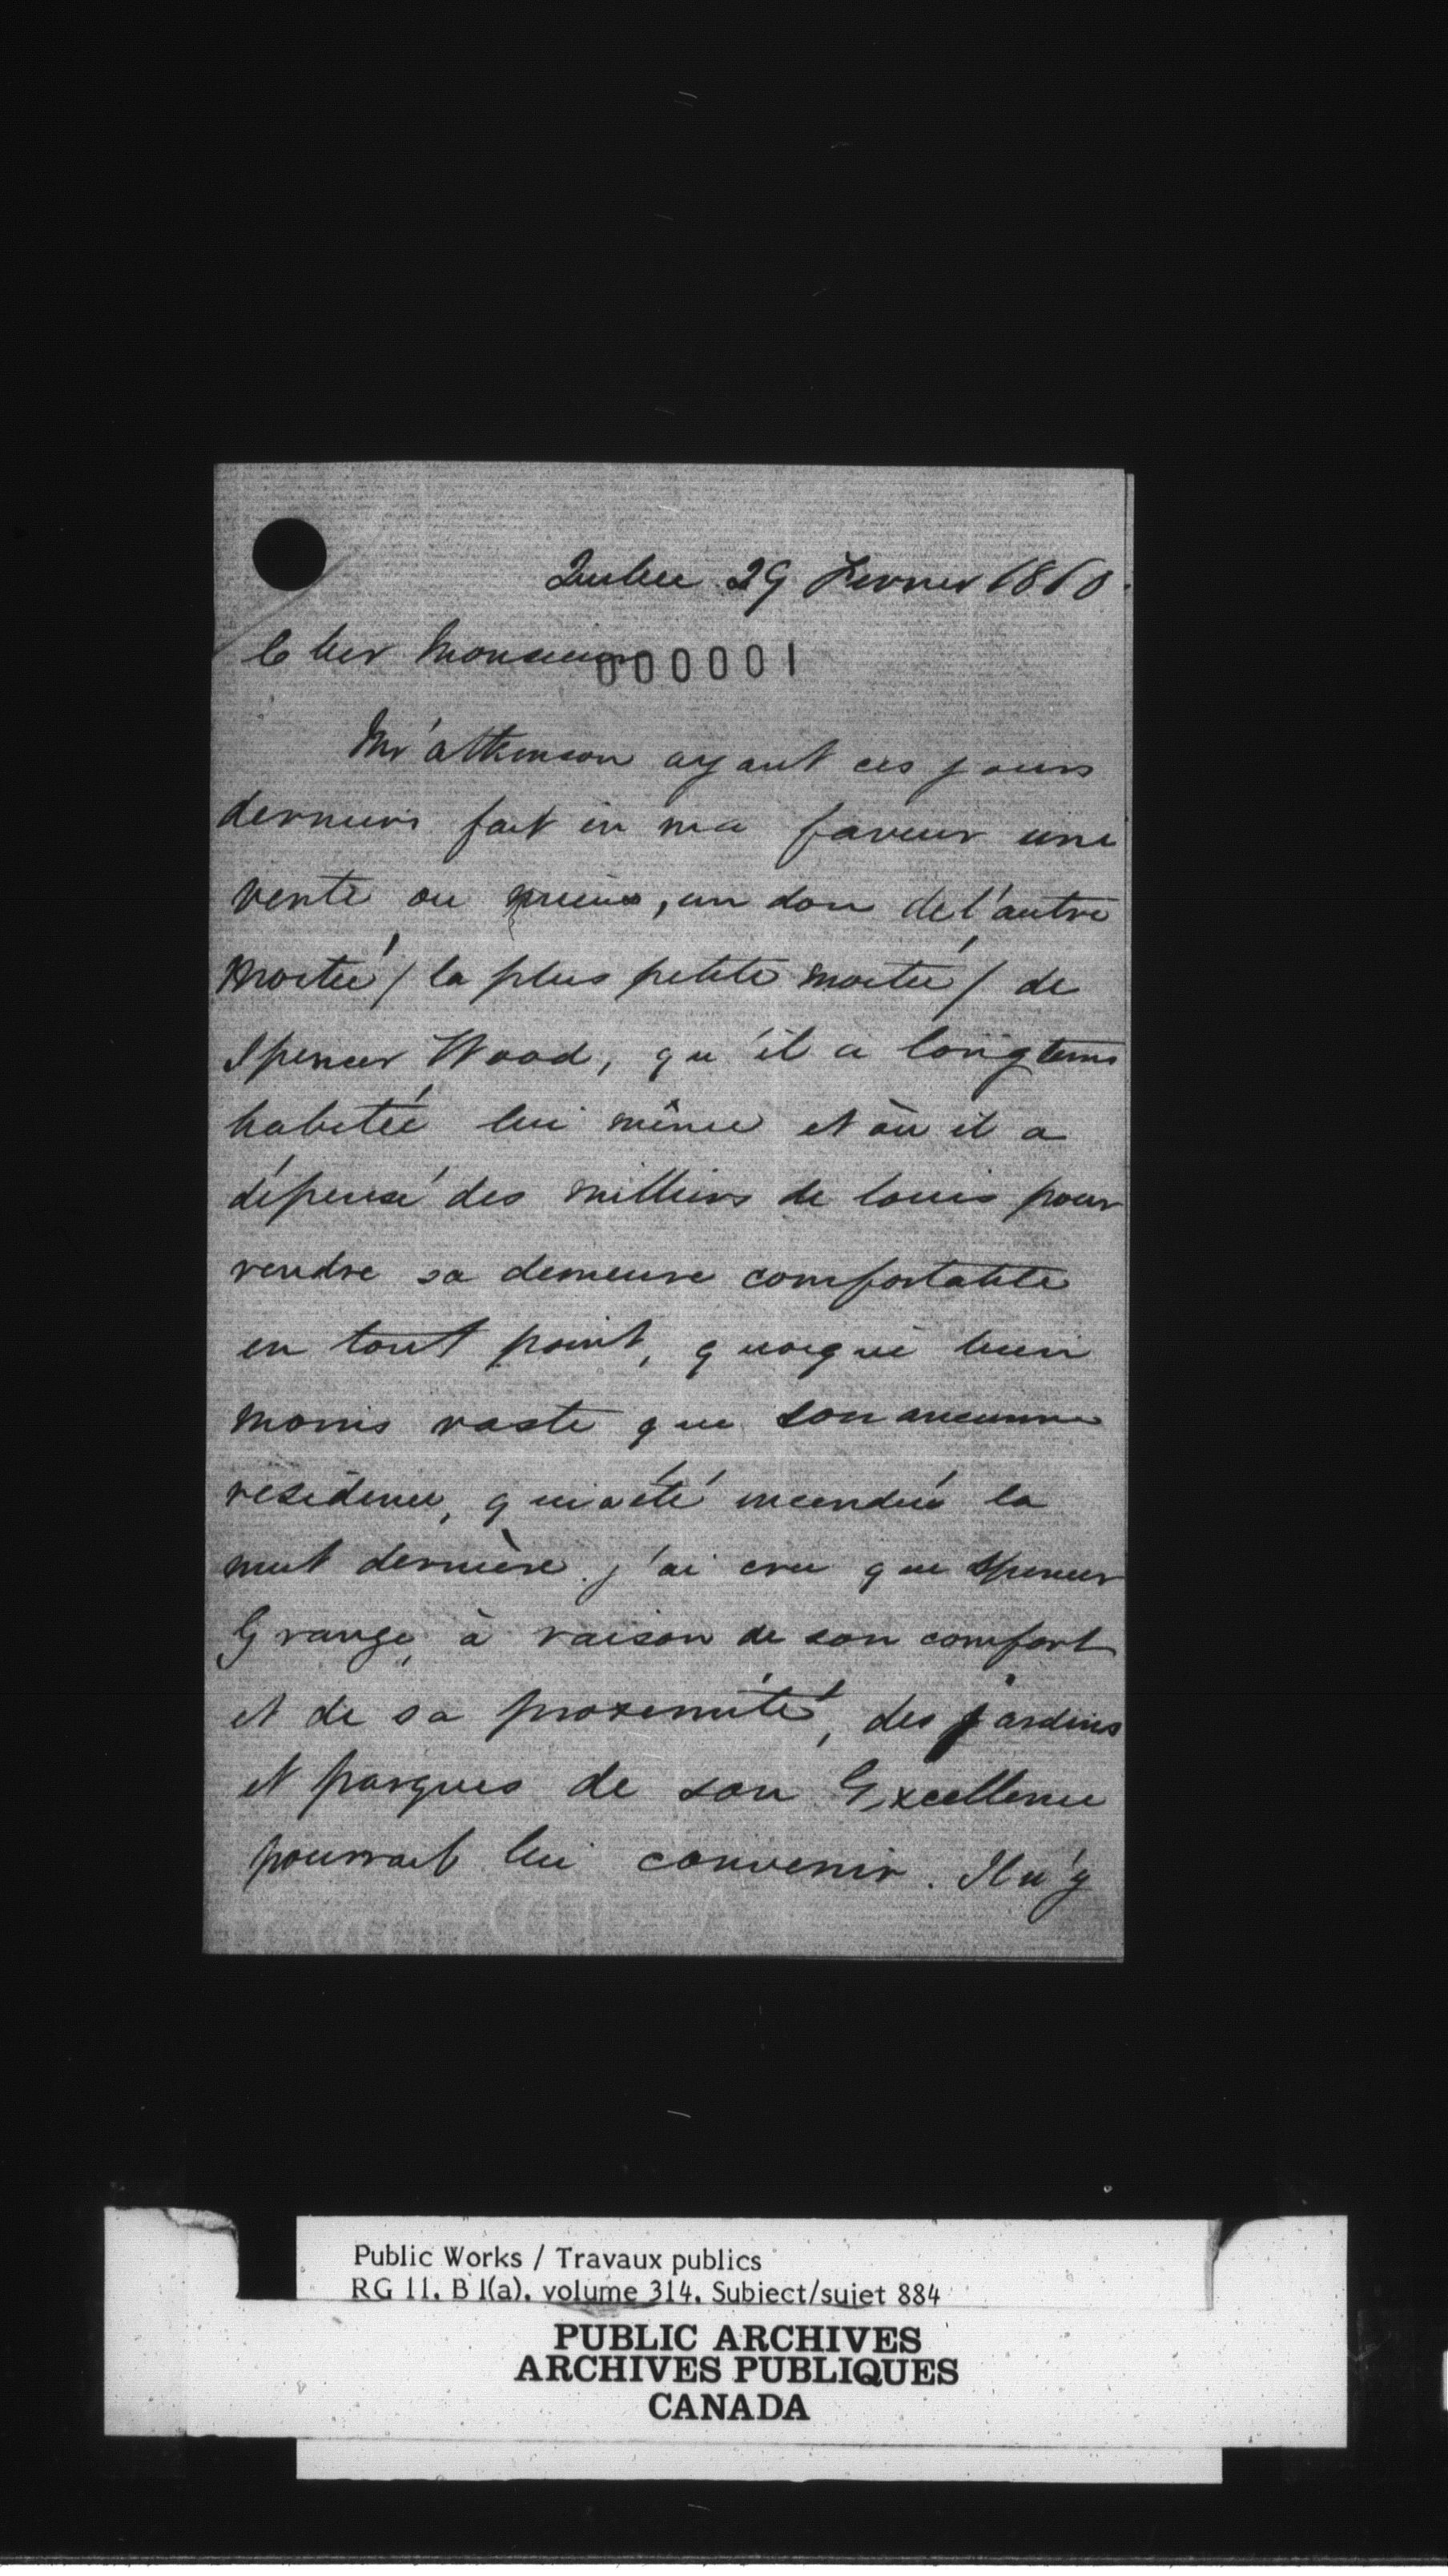 Quebec 29 Fevrier 1860.
Cher Monsieur
000001
Mr Atkinson ayant ces jours
derniers fait en ma faveur une
vente ou mieux, un don de l'autre
Moitié / la plus petite moitié / de
Spencer Wood, qu'il a longtems
habitée lui même et où il a
dépensé des milliers de louis pour
rendre sa demeure comfortable
en tout point, quoique bien
moins vaste que son ancienne
résidence, qui a été incendiée la
nuit dernière. j'ai cru que Spencer
Grange, à raison de son comfort
et de sa proximité, des jardins
et parques de son Excellence
pourrait lui convenir. Il n'y
Public Works / Travaux publics
RG 11, B 1(a), volume 314, Subject/sujet 884
PUBLIC ARCHIVES
ARCHIVES PUBLIQUES
CANADA